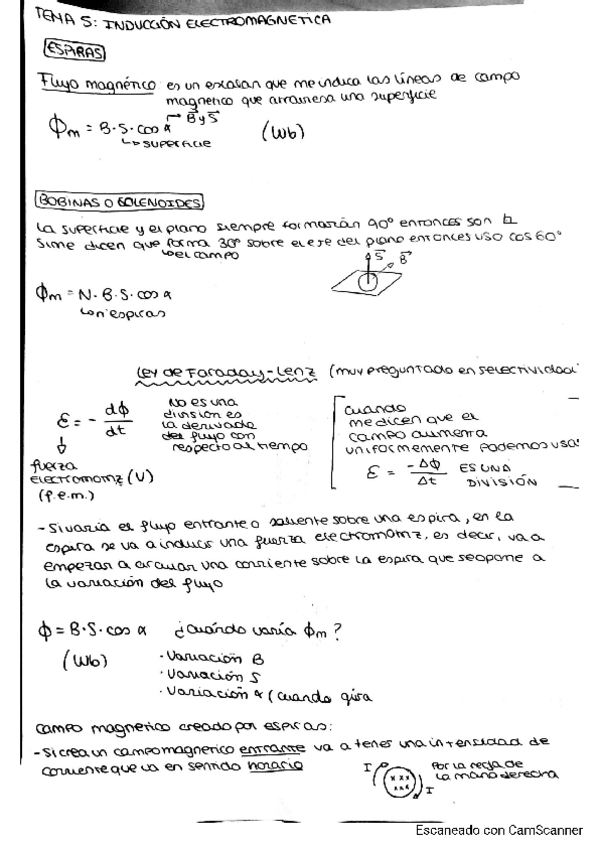 TEMA 5: INDUCCIÓN ELECTROMAGNETICA
ESPIRAS
Flujo magnético es un escalar que me indica las líneas de campo
magnetico que atraviesa una superficie
Φm = B·S·cos α → B⃗ y S⃗ (Wb)
↳ superficie
BOBINAS O SOLENOIDES
La superficie y el plano siempre formarán 90º entonces son
Si me dicen que forma 30º sobre el eje del plano entonces uso cos 60º
↳ el campo
S⃗ B⃗
Φm = N·B·S·cos α
↳ nº espiras
Ley de Faraday-Lenz (muy preguntado en selectividad)
ε = - dΦ/dt
No es una
división es
la derivada
del flujo con
respecto al tiempo
fuerza
electromotriz (V)
(f.e.m.)
Cuando
me dicen que el
campo aumenta
uniformemente podemos usar
ε = -ΔΦ/Δt ES UNA
DIVISIÓN
- Si varia el flujo entrante o saliente sobre una espira, en la
espira se va a inducir una fuerza electromotriz, es decir, va a
empezar a circular una corriente sobre la espira que se opone a
la variación del flujo
Φ = B·S·cos α ¿Cuándo varía Φm?
(Wb)
· Variación B
· Variación S
· Variación α (cuando gira
Campo magnetico creado por espiras:
- Si crea un campo magnetico entrante va a tener una intensidad de
corriente que va en sentido horario
I
x x x
x x x
I
Por la regla de
la mano derecha
Escaneado con CamScanner